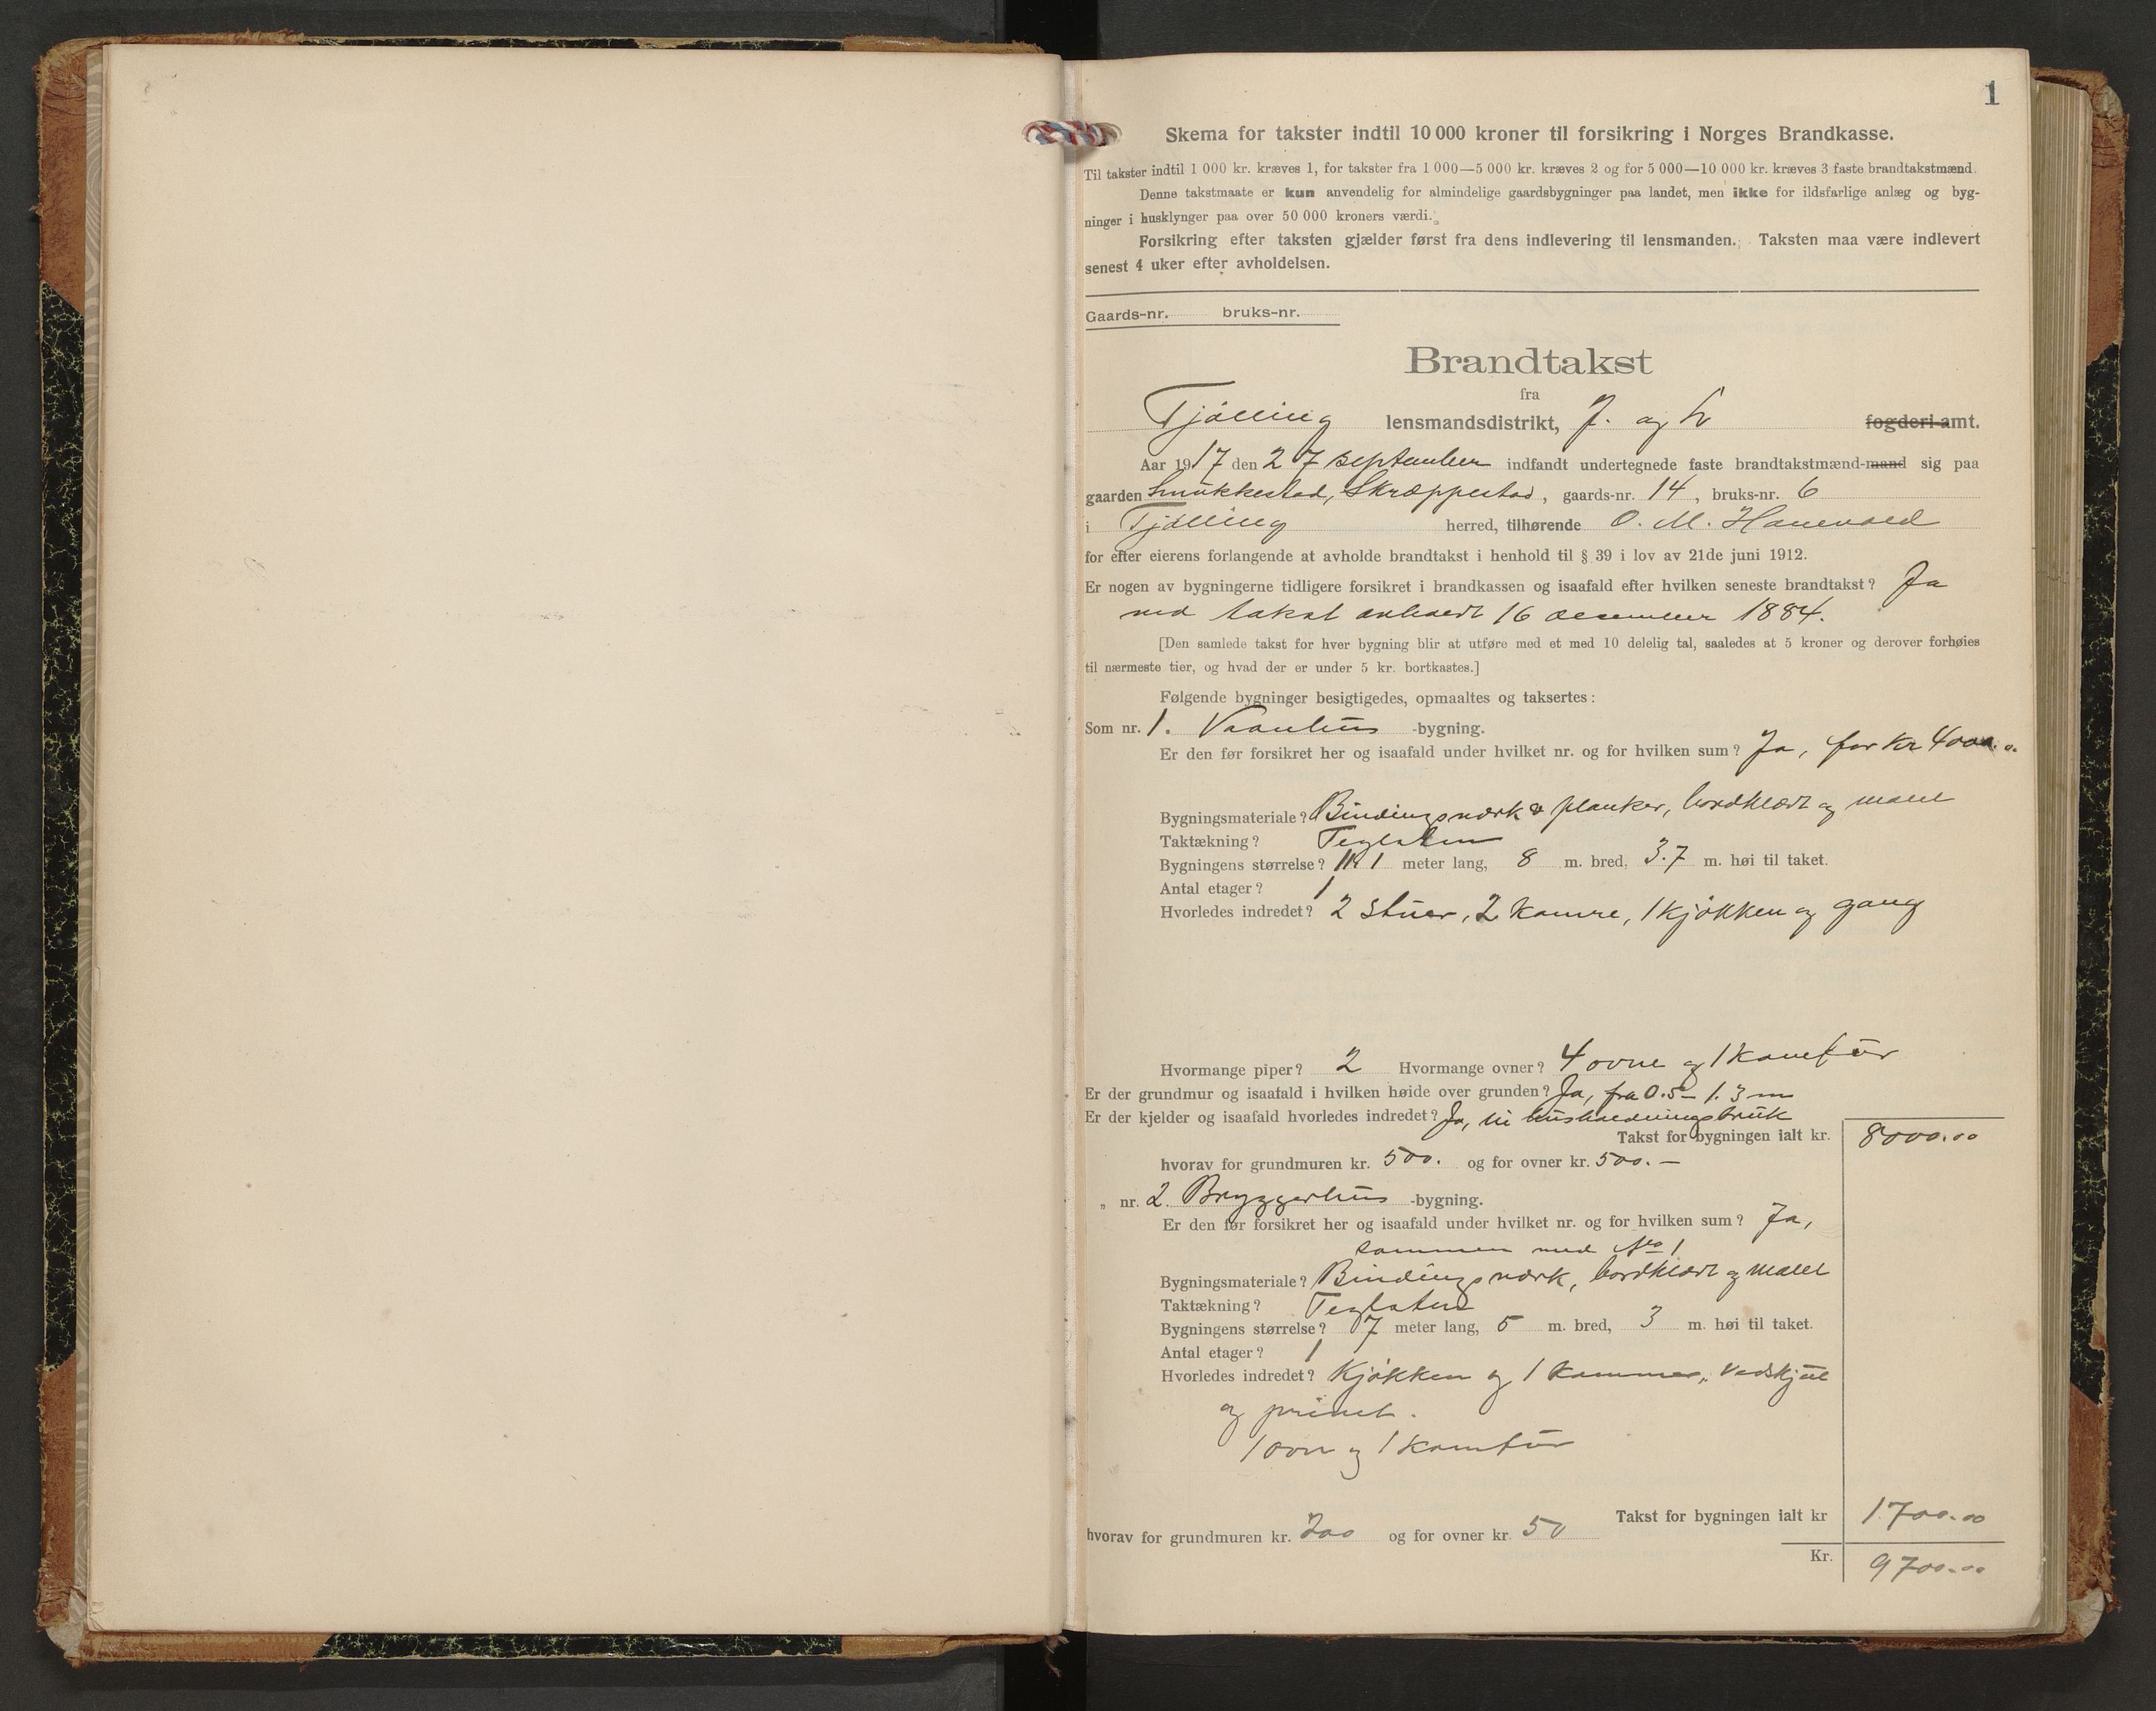 1
Skema for takster indtil 10 000 kroner til forsikring i Norges Brandkasse.
Til takster indtil 1 000 kr. kræves 1, for takster fra 1 000—5 000 kr. kræves 2 og for 5 000—10 000 kr. kræves 3 faste brandtakstmænd.
Denne takstmaate er kun anvendelig for almindelige gaardsbygninger paa landet, men ikke for ildsfarlige anlæg og byg-
ninger i husklynger paa over 50 000 kroners værdi.
Forsikring efter taksten gjælder først fra dens indlevering til lensmanden. Taksten maa være indlevert
senest 4 uker efter avholdelsen.
Gaards-nr. bruks-nr.
Brandtakst
fra
Tjølling lensmandsdistrikt, J. og L fogderi-amt.
Aar 1917 den 27 september indfandt undertegnede faste brandtakstmænd-mand sig paa
gaarden Smukkestad, Skræppestad, gaards-nr. 14, bruks-nr. 6
i Tjølling herred, tilhørende O. M. Hanevold
for efter eierens forlangende at avholde brandtakst i henhold til § 39 i lov av 21de juni 1912.
Er nogen av bygningerne tidligere forsikret i brandkassen og isaafald efter hvilken seneste brandtakst? Ja
ved takst avholdt 16 desember 1884.
[Den samlede takst for hver bygning blir at utføre med et med 10 delelig tal, saaledes at 5 kroner og derover forhøies
til nærmeste tier, og hvad der er under 5 kr. bortkastes.]
Følgende bygninger besigtigedes, opmaaltes og taksertes:
Som nr. 1. Vaanhus -bygning.
Er den før forsikret her og isaafald under hvilket nr. og for hvilken sum? Ja, for kr 4000.
Bygningsmateriale? Bindingsverk & planker, bordklædt og malet
Taktækning? Teglsten
Bygningens størrelse? 11.1 meter lang, 8 m. bred, 3.7 m. høi til taket.
Antal etager? 1
Hvorledes indredet? 2 stuer, 2 kamre, 1 kjøkken og gang
Hvormange piper? 2 Hvormange ovner? 4 ovne og 1 komfur
Er der grundmur og isaafald i hvilken høide over grunden? Ja, fra 0.5 - 1.3 m
Er der kjelder og isaafald hvorledes indredet? Ja, til husholdningsbruk
Takst for bygningen ialt kr. 8000.00
hvorav for grundmuren kr. 500. og for ovner kr. 500.—
„ nr. 2. Bryggerhus -bygning.
Er den før forsikret her og isaafald under hvilket nr. og for hvilken sum? Ja,
sammen med No 1
Bygningsmateriale? Bindingsverk, bordklædt og malet
Taktækning? Teglsten
Bygningens størrelse? 7 meter lang, 5 m. bred, 3 m. høi til taket.
Antal etager? 1
Hvorledes indredet? Kjøkken og 1 kammer, vedskjul
og privet.
1 ovn og 1 komfur
Takst for bygningen ialt kr 1700.00
hvorav for grundmuren kr. 200 og for ovner kr. 50
Kr. 9700.00